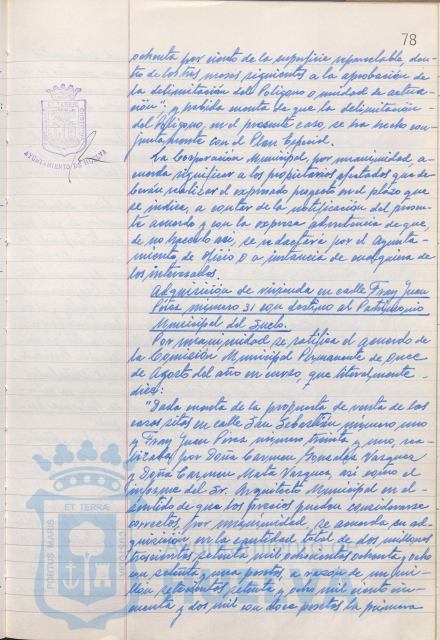 78
ochenta por ciento de la superficie reparcelable, den-
tro de los tres meses siguientes a la aprobación de
la delimitación del Polígono o unidad de actua-
ción"; y habida cuenta de que la delimitación
del Polígono, en el presente caso, se ha hecho con-
juntamente con el Plan Especial.
La Corporación Municipal, por unanimidad, a-
cuerda significar a los propietarios afectados que de-
berán realizar el expresado proyecto en el plazo que
se indica, a contar de la notificación del presen-
te acuerdo y con la expresa advertencia de que,
de no hacerlo así, se redactará por el Ayunta-
miento, de oficio o a instancia de cualquiera de
los interesados.
Adquisición de vivienda en calle Fray Juan
Pérez número 31 con destino al Patrimonio
Municipal del Suelo.
Por unanimidad se ratifica el acuerdo de
la Comisión Municipal Permanente de once
de Agosto del año en curso, que literalmente
dice:
"Dada cuenta de la propuesta de venta de las
casas sitas en calle San Sebastián número uno
y Fray Juan Pérez número treinta y uno, rea-
lizada por Doña Carmen González Vazquez
y Doña Carmen Mata Vazquez, así como el
informe del Sr. Arquitecto Municipal en el
sentido de que los precios pueden considerarse
correctos, por unanimidad, se acuerda su ad-
quisición, en la cantidad total de dos millones
trescientas setenta mil ochocientas ochenta y ocho
con setenta y una pesetas, a razón de un mi-
llón setecientas setenta y ocho mil ciento cin-
cuenta y dos mil con doce pesetas la primera
AYUNTAMIENTO DE HUELVA
PORTUS MARIS
ET TERRAE
CUSTODIA